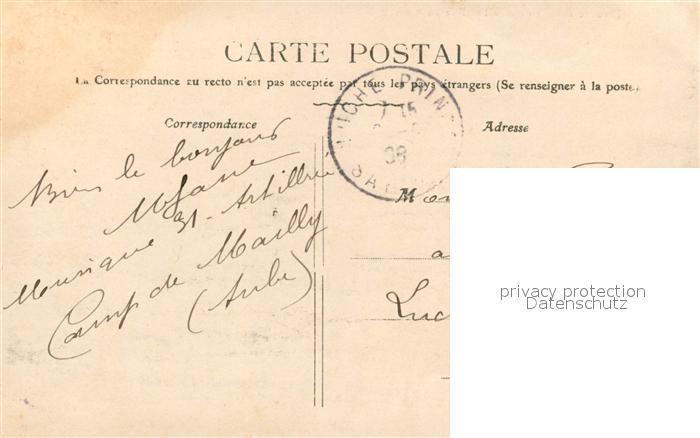 CARTE POSTALE
La Correspondance au recto n'est pas acceptée par tous les pays étrangers (Se renseigner à la poste)
Correspondance
Adresse
LUCHÉ-PRIN
7 15
08
SAR
Bien le bonjour
Musique 31 - Artillrie
Camp de Mailly
(Aube)
Mon
a
Luc
privacy protection
Datenschutz